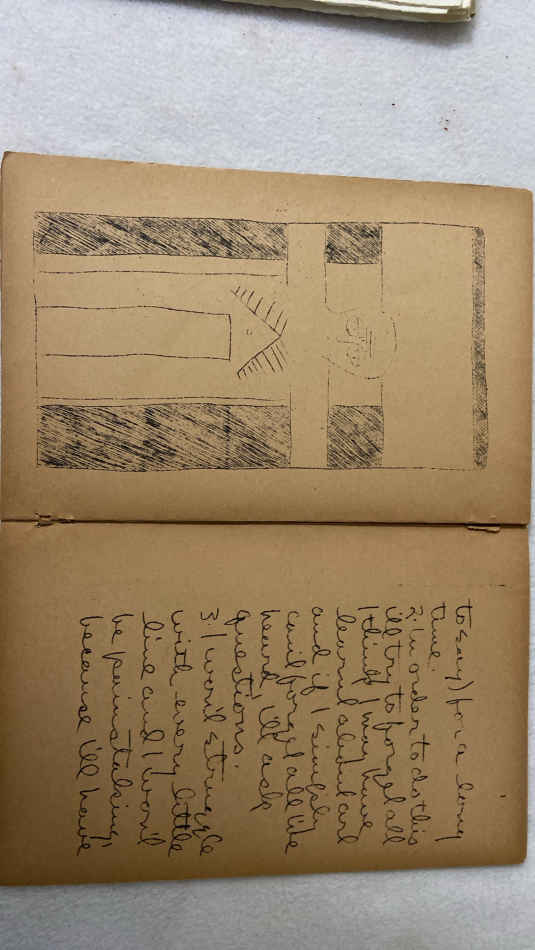 to say) for a long
time.
2. In order to do this
i'll try to forget all
things I may have
learned about art
and if I simply
can't forget all i've
heard, i'll ask
questions.
3. I won't struggle
with every little
line and I won't
be painstaking,
because i'll have